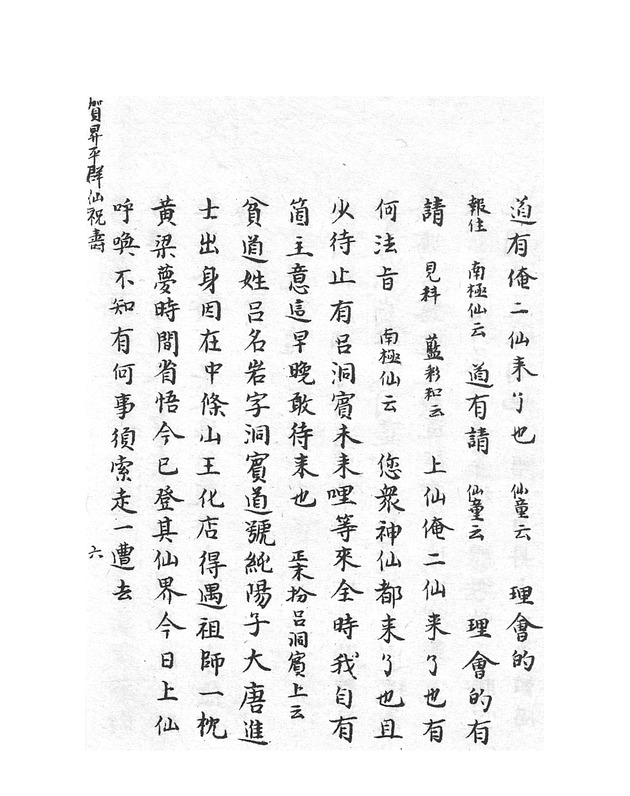 道有俺二仙来了也　仙童云　理會的
報住　南極仙云　道有請　仙童云　理會的有
請　見科　藍彩和云　上仙俺二仙来了也有
何法旨　南極仙云　您衆神仙都来了也且
少待止有吕洞賓未来哩等來全時我自有
箇主意這早晚敢待来也　正末扮吕洞賓上云
貧道姓吕名岩字洞賓道號純陽子大唐進
士出身因在中條山王化店得遇祖師一枕
黄梁夢時間省悟今已登其仙界今日上仙
呼喚不知有何事須索走一遭去
賀昇平群仙祝壽
六